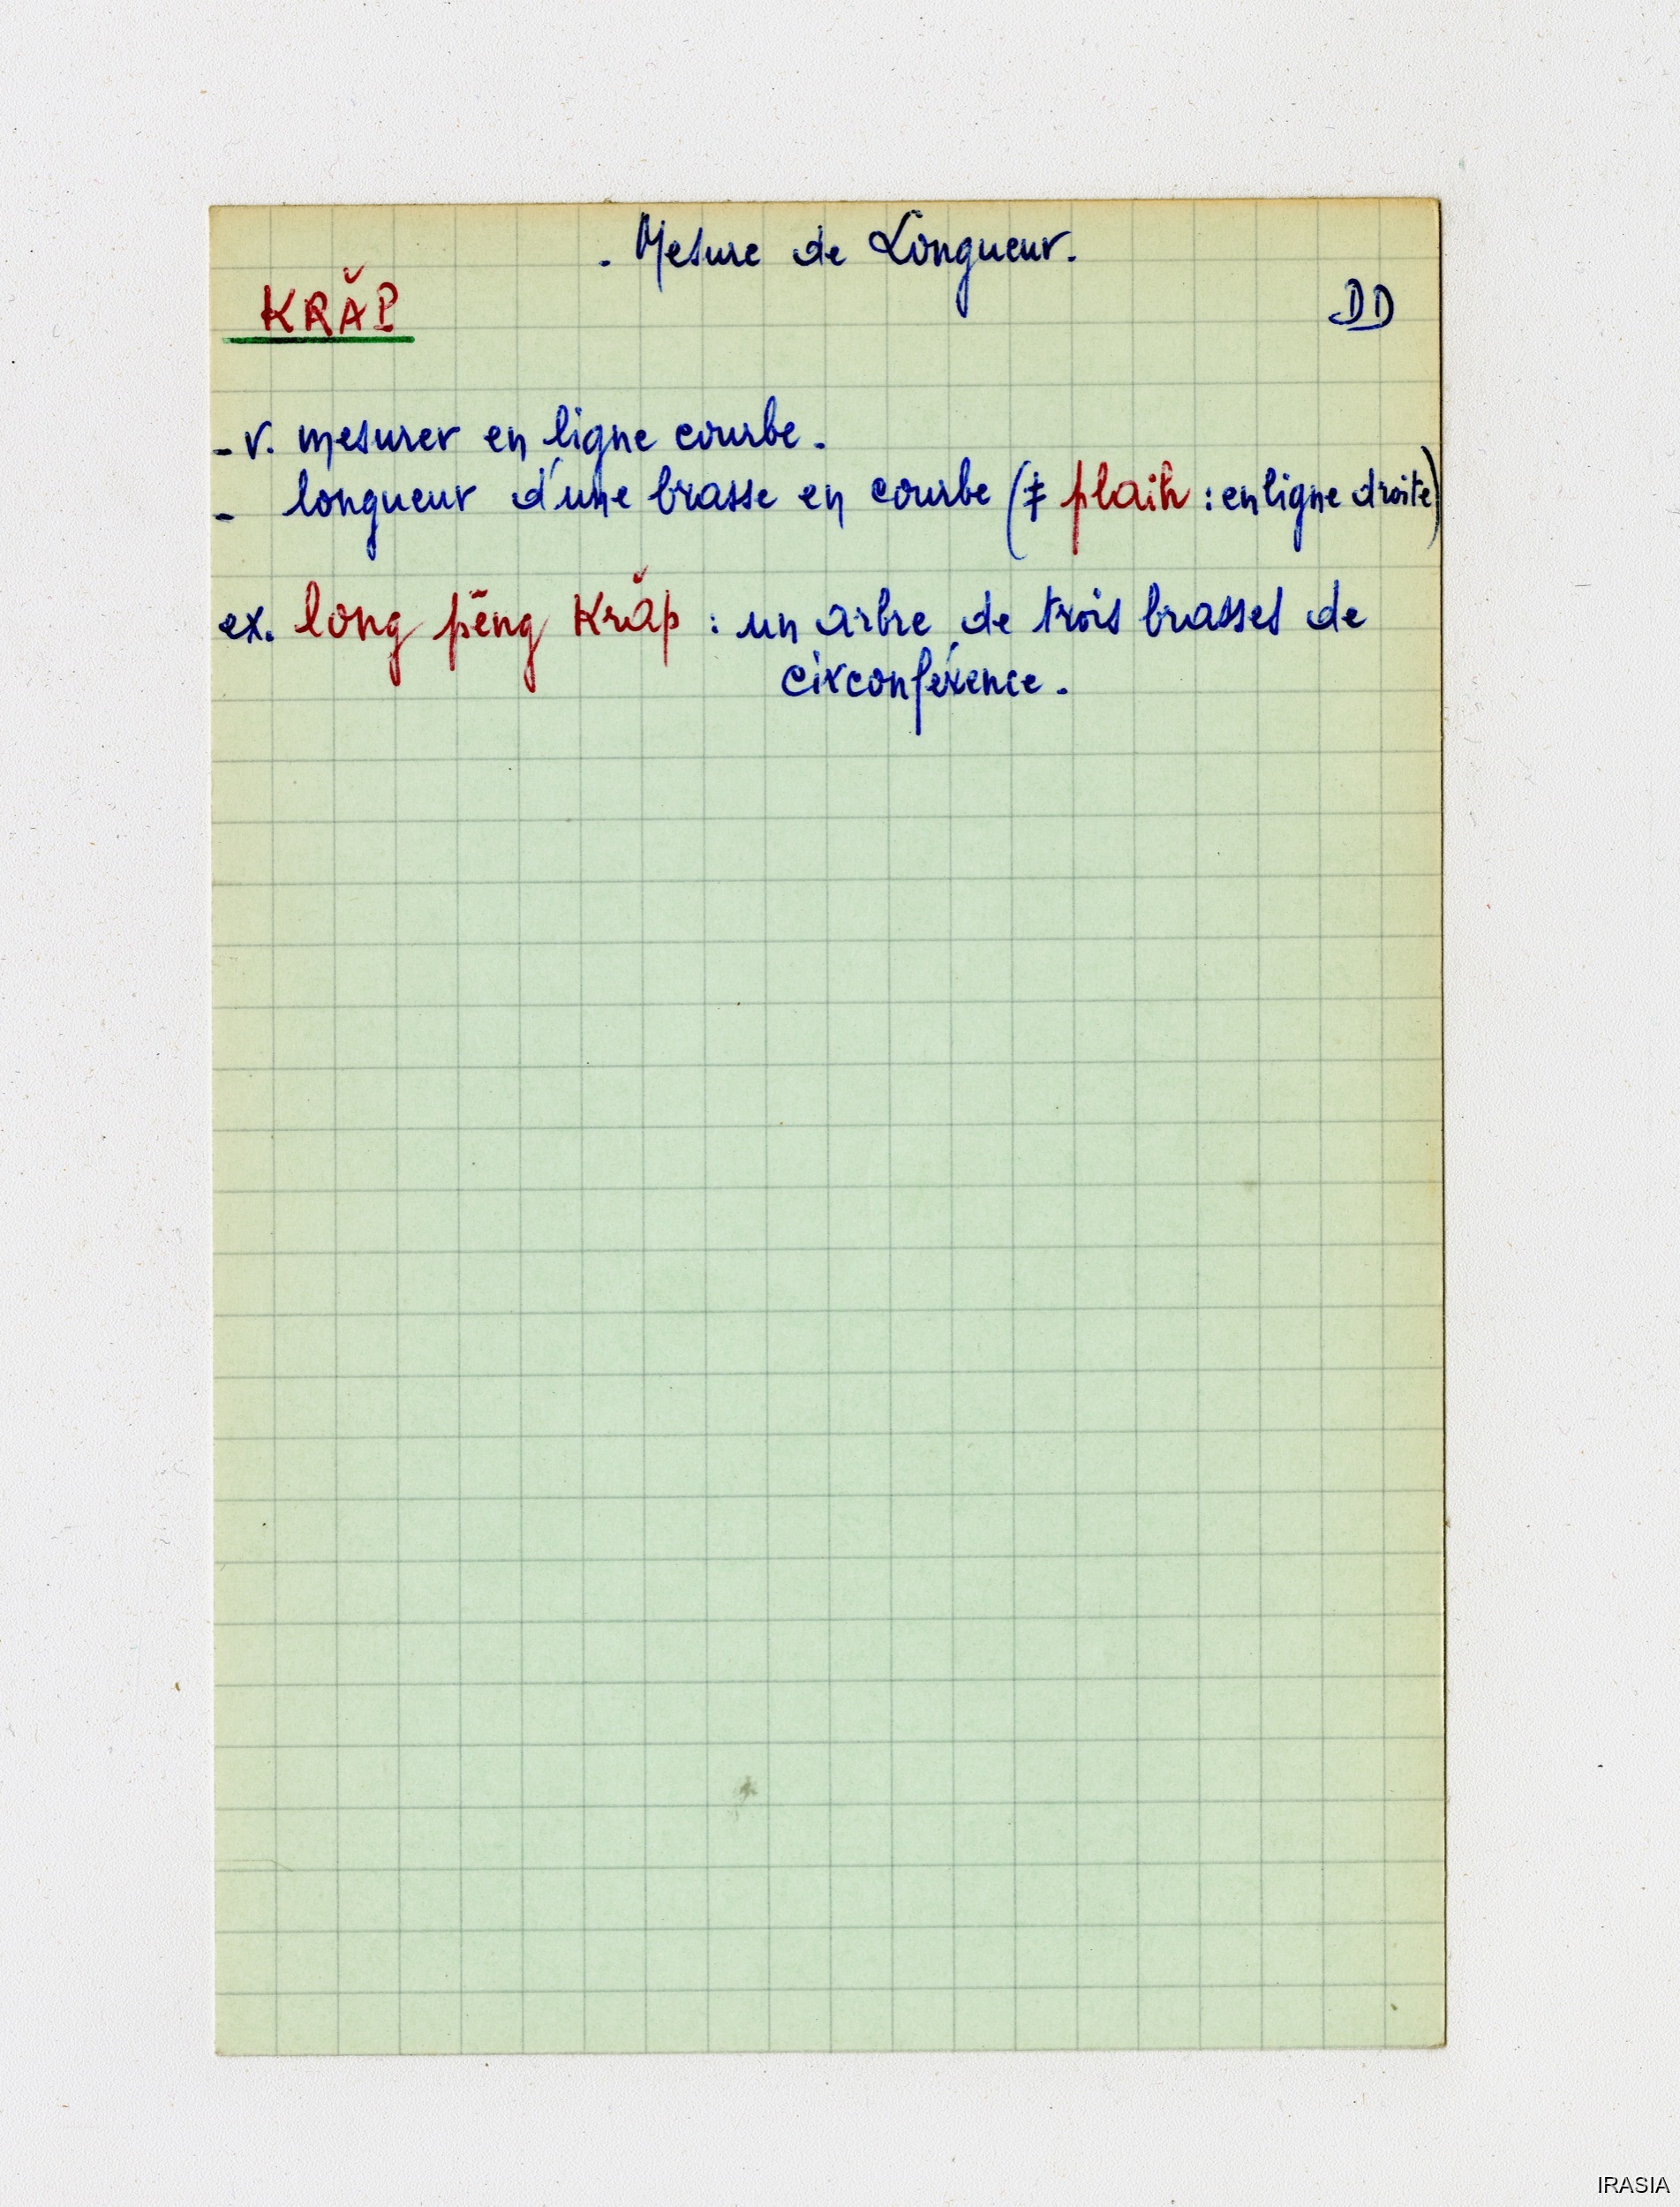 . Mesure de Longueur.
KRĂP
DD
- v. mesurer en ligne courbe.
- longueur d'une brasse en courbe (‡ plaih : en ligne droite)
ex. long pēng Krăp : un arbre de trois brasses de
circonférence.
IRASIA